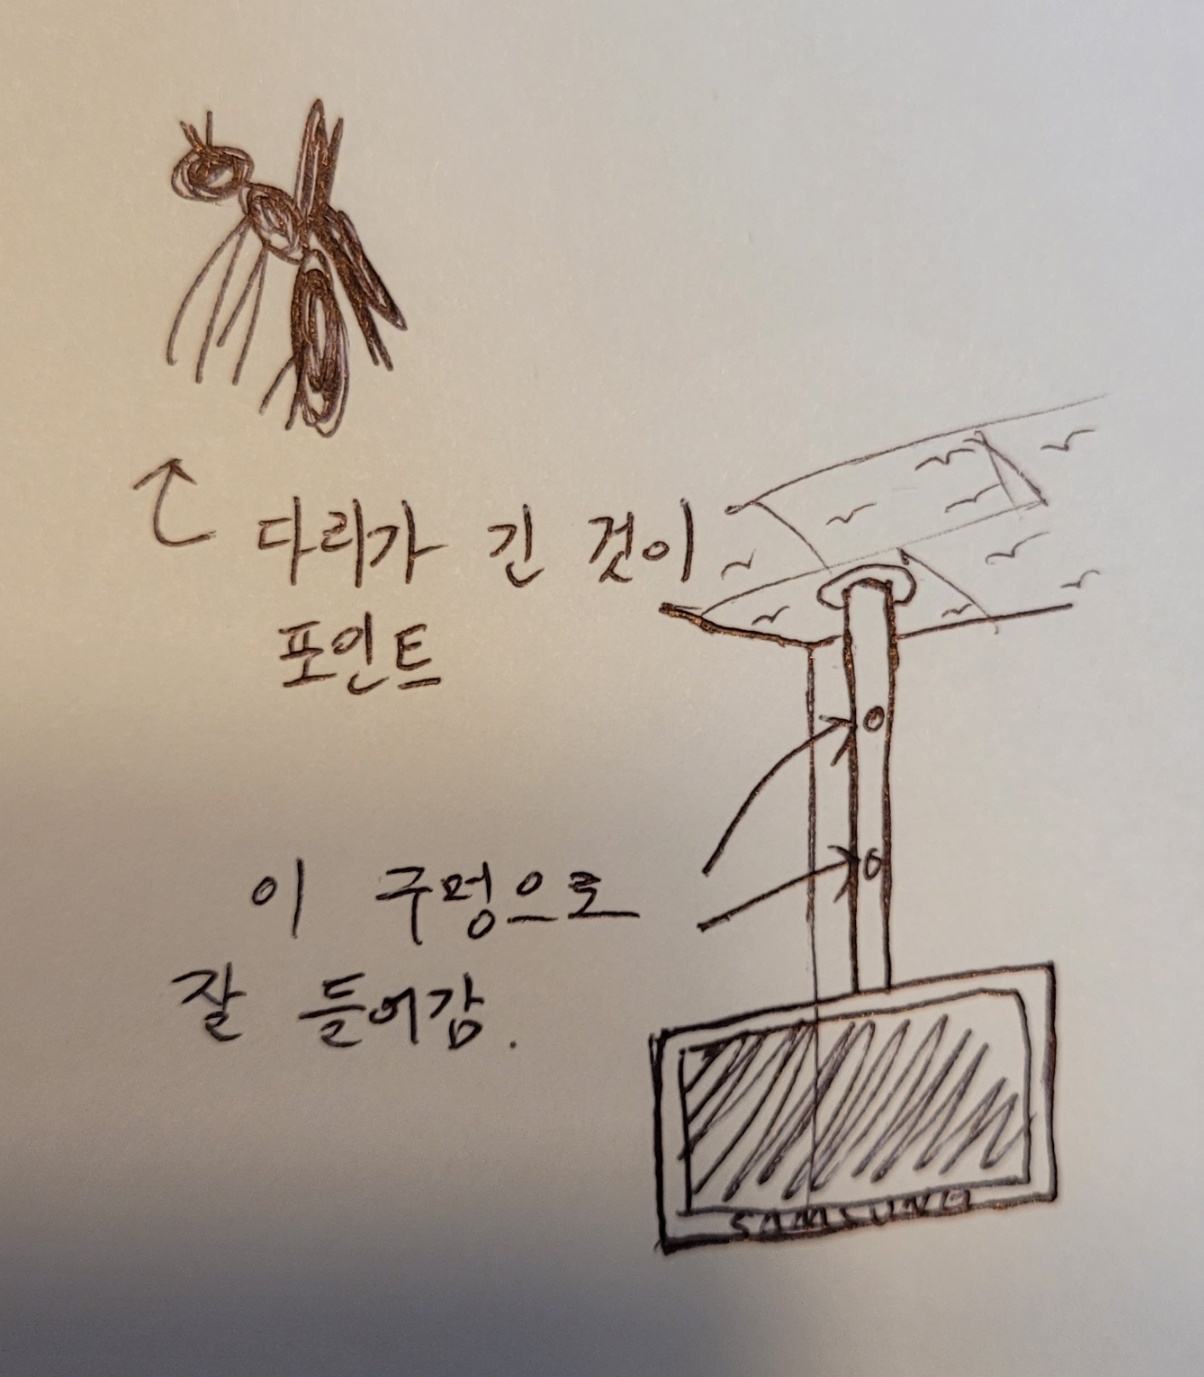 다리가 긴 것이
포인트
이 구멍으로
잘 들어감.
SAMSUNG